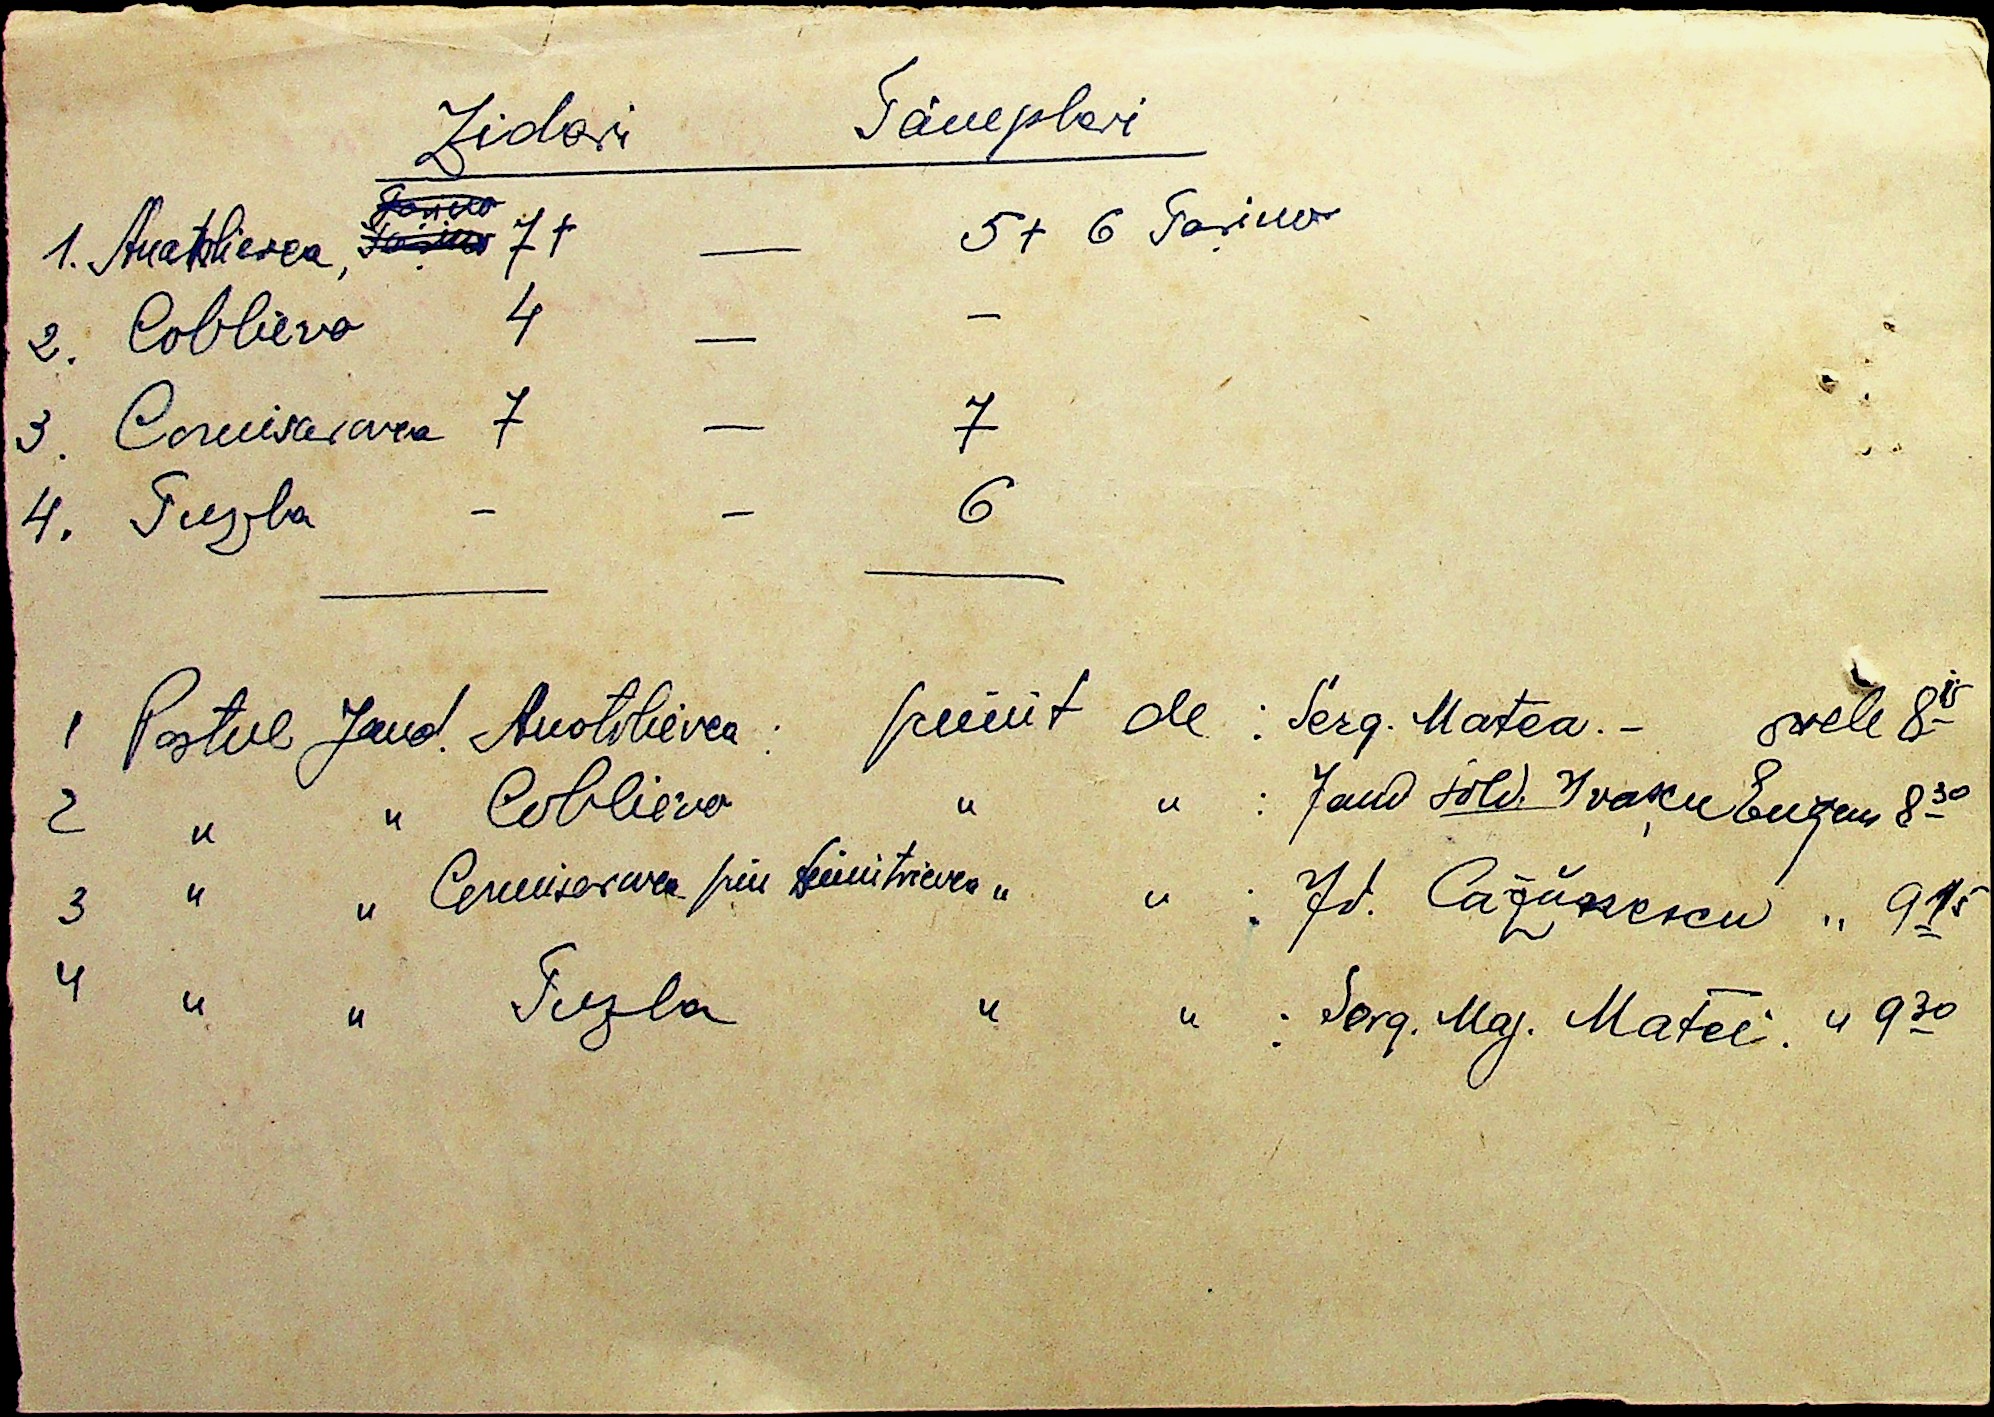 Zidari Tâmplari
1. Anatolievca, 7+ — 5+ 6 Tașino
2. Coblievo 4 — –
3. Comisarovca 7 — 7
4. Tuzla – – 6
1 Postul Jand. Anatolievca: primit de: Serg. Matea. – orele 8 15
2 " " Coblievo " " : Jand sold. Ivașcu Eugen 8 30
3 " " Comisarovca prin Dimitrievca " " : Jd. " 9 15
4 " " Tuzla " " : Serg. Maj. Matei. " 9 30